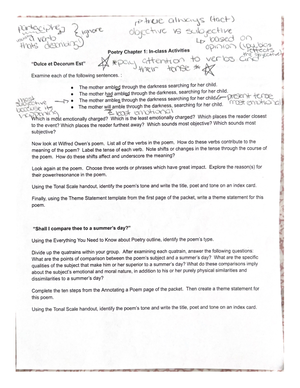 verb
ignore
objective vs subjective
based on
opinion
Poetry Chapter 1: In-class Activities
"Dulce et Decorum Est"
pay attention to verbs and their tense
Examine each of the following sentences.
• The mother ambled through the darkness searching for her child.
• The mother had ambled through the darkness, searching for her child.
• The mother ambles through the darkness searching for her child.
• The mother will amble through the darkness, searching for her child.
present tense
most emotional
happening
least emotional
Which is most emotionally charged? Which is the least emotionally charged? Which places the reader closest
to the event? Which places the reader furthest away? Which sounds most objective? Which sounds most
subjective?
Now look at Wilfred Owen's poem. List all of the verbs in the poem. How do these verbs contribute to the
meaning of the poem? Label the tense of each verb. Note shifts or changes in the tense through the course of
the poem. How do these shifts affect and underscore the meaning?
Look again at the poem. Choose three words or phrases which have great impact. Explore the reason(s) for
their power/resonance in the poem.
Using the Tonal Scale handout, identify the poem's tone and write the title, poet and tone on an index card.
Finally, using the Theme Statement template from the first page of the packet, write a theme statement for this
poem.
"Shall I compare thee to a summer's day?"
Using the Everything You Need to Know about Poetry outline, identify the poem's type.
Divide up the quatrains within your group. After examining each quatrain, answer the following questions:
What are the points of comparison between the poem's subject and a summer's day? What are the specific
qualities of the subject that make him or her superior to a summer's day? What do these comparisons imply
about the subject's emotional and moral nature, in addition to his or her purely physical similarities and
dissimilarities to a summer's day?
Complete the ten steps from the Annotating a Poem page of the packet. Then create a theme statement for
this poem.
Using the Tonal Scale handout, identify the poem's tone and write the title, poet and tone on an index card.